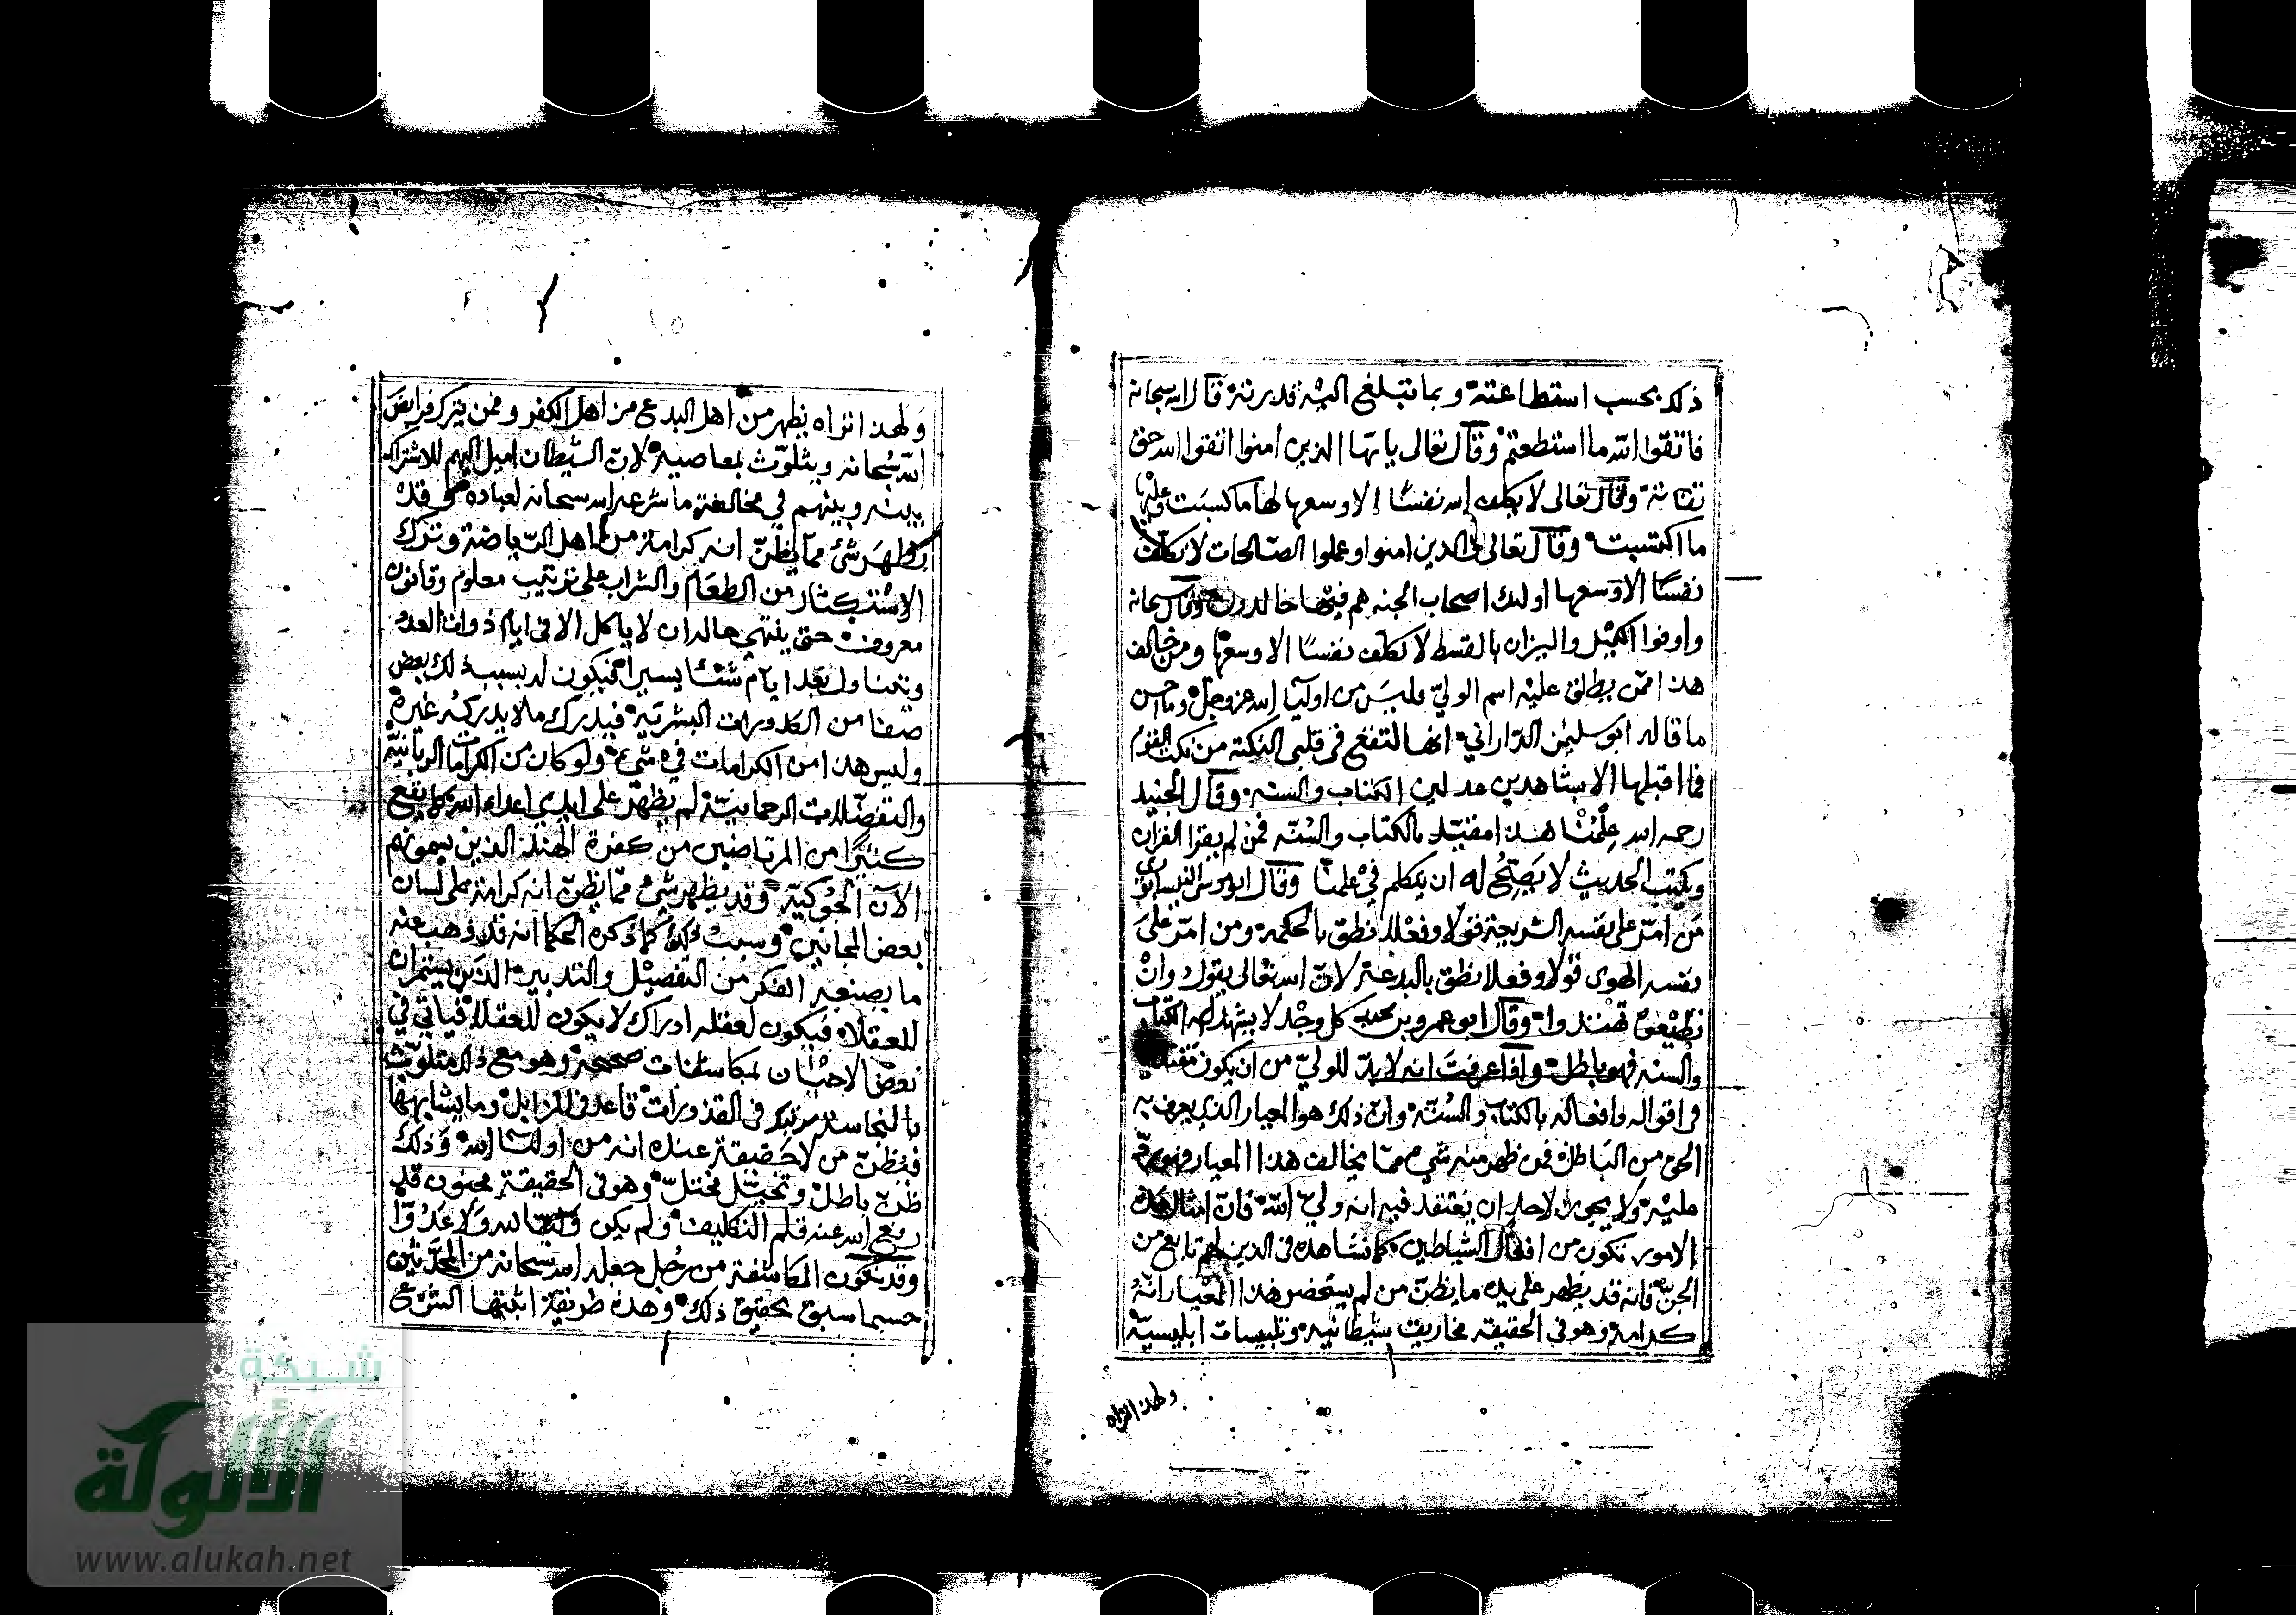 ذلك بحسب استطاعته وبما تبلغ اليه قدرته قال الله سبحانه
فاتقوا الله ما استطعتم وقال تعالى يا يها الذين امنوا اتقوا الله حق
تقاته وقال تعالى لا يكلف الله نفسا الا وسعها لها ما كسبت وعليها
ما اكتسبت وقال تعالى والذين امنوا وعملوا الصالحات لا نكلف
نفسا الا وسعها اولئك اصحاب الجنه هم فيها خالدون وقال سبحانه
واوفوا الكيل والميزان بالقسط لا نكلف نفسا الا وسعها ومن خالف
هذا ممن يطلق عليه اسم الولي فليس من اوليا الله عز وجل وما احسن
ما قاله ابو سليمن الداراني انها لتقع في قلبي النكتة من نكت القوم
فما اقبلها الا بشاهدين عدلين الكتاب والسنه وقال الجنيد
رحمه الله علمنا هذا مقيد بالكتاب والسنه فمن لم يقرا القران
ويكتب الحديث لا يصح له ان يتكلم في علمنا وقال ابو النيسابوري
من امر على نفسه الشريعة قولا وفعلا نطق بالحكمه ومن امر على
نفسه الهوى قولا وفعلا نطق بالبدعة لان الله تعالى يقول وان
تطيعوه تهتدوا وقال ابو عمرو بن نجيد كل وجد لا يشهد له الكتاب
والسنه فهو باطل واذا عرفت انه لا بد للولي من ان يكون مقتديا
في اقواله وافعاله بالكتاب والسنه وان ذلك هو المعيار الذي يعرف به
الحق من الباطل فمن ظهر منه شيء مما يخالف هذا المعيار فهو رد
عليه ولا يجوز لاحد ان يعتقد فيه انه ولي الله فان امثال هذه
الامور تكون من افعال الشياطين كما نشاهده في الذين لهم تابع من
الجن فانه قد يظهر على يده ما يظن من لم يستحضر هذا المعيار انه
كرامة وهو في الحقيقه مخاريق شيطانيه وتلبيسات ابليسية
ولهذا تراه
ولهذا تراه يظهر من اهل البدع من اهل الكفر وممن يترك فرايض
الله سبحانه ويتلوث بمعاصيه لان الشيطان اميل اليهم للاشتراك
بينه وبينهم في مخالفة ما شرعه الله سبحانه لعباده وقد
يظهر شئ مما يظن انه كرامة من اهل الرياضة وترك
الاستكثار من الطعام والشراب على ترتيب معلوم وقانون
معروف حتى ينتهي حاله ان لا ياكل الا في ايام ذوات العدد
ويتناول بعد ايام شئا يسيرا فيكون له بسبب ذلك بعض
صفا من الكدورات البشرية فيدرك ما لا يدركه غيره
وليس هذا من الكرامات في شيء ولو كان من الكرامات الربانية
والتفضلات الرحمانية لم يظهر على ايدي اعداء الله كما يقع
كثيرا من المرتاضين من كفرة الهند الذين يسمونهم
الان الجوكية وقد يظهر شيء مما يظن انه كرامة على لسان
بعض المجانين وسبب ذلك كما ذكره الحكما انه قد ذهب عنه
ما يصنعه الفكر من التفصيل والتدبير الذين يستمران
للعقلاء فيكون لعقله ادراك لا يكون للعقلا فياتي في
بعض الاحيان بمكاشفات صحيحة وهو مع ذلك متلوث
بالنجاسة مرتبك في القذورات قاعد في المزابل وما يشابهها
فيظن من لا حقيقة عنده انه من اوليا الله وذلك
ظن باطل وتخيل مختل وهو في الحقيقة مجنون قد
رفع الله عنه قلم التكليف ولم يكن وليا لله ولا عدوا
وقد تكون المكاشفة من رجل جعله الله سبحانه من المحدثين
حسبما سبق تحقيق ذلك وهذه طريقة اثبتها الشرع
شبكة
الألوكة
www.alukah.net